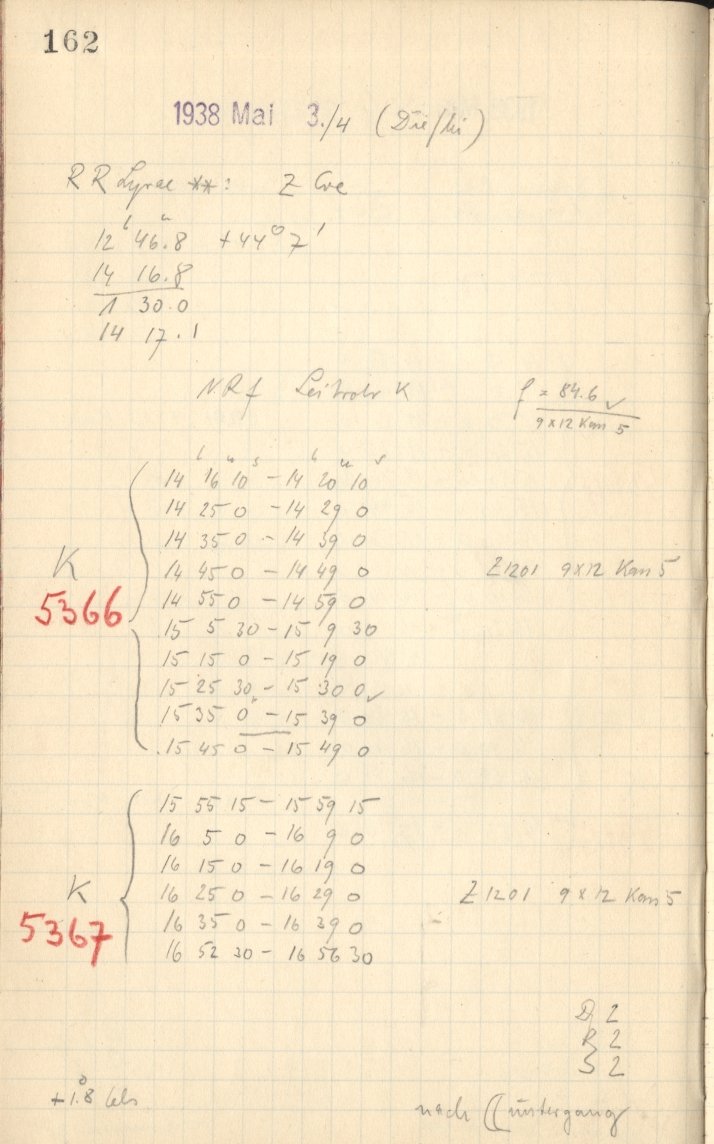 162
1938 Mai 3./4 (Die/Mi)
RR Lyrae **: Z CVe
12ʰ 46ᵐ.8 +44° 7'
14 16.8
1 30.0
14 17.1
NRf Leitrohr K
f = 84.6 ✓
9x12 Kan 5
14ʰ 16ᵐ 10ˢ - 14ʰ 20ᵐ 10ˢ
14 25 0 - 14 29 0
14 35 0 - 14 39 0
14 45 0 - 14 49 0
K
Z1201 9x12 Kan 5
14 55 0 - 14 59 0
5366
15 5 30 - 15 9 30
15 15 0 - 15 19 0
15 25 30 - 15 30 0 ✓
15 35 0 - 15 39 0
15 45 0 - 15 49 0
15 55 15 - 15 59 15
16 5 0 - 16 9 0
16 15 0 - 16 19 0
K
16 25 0 - 16 29 0
Z1201 9x12 Kan 5
5367
16 35 0 - 16 39 0
16 52 30 - 16 56 30
D 2
R 2
S 2
+1.8° Cels
nach ☾untergang